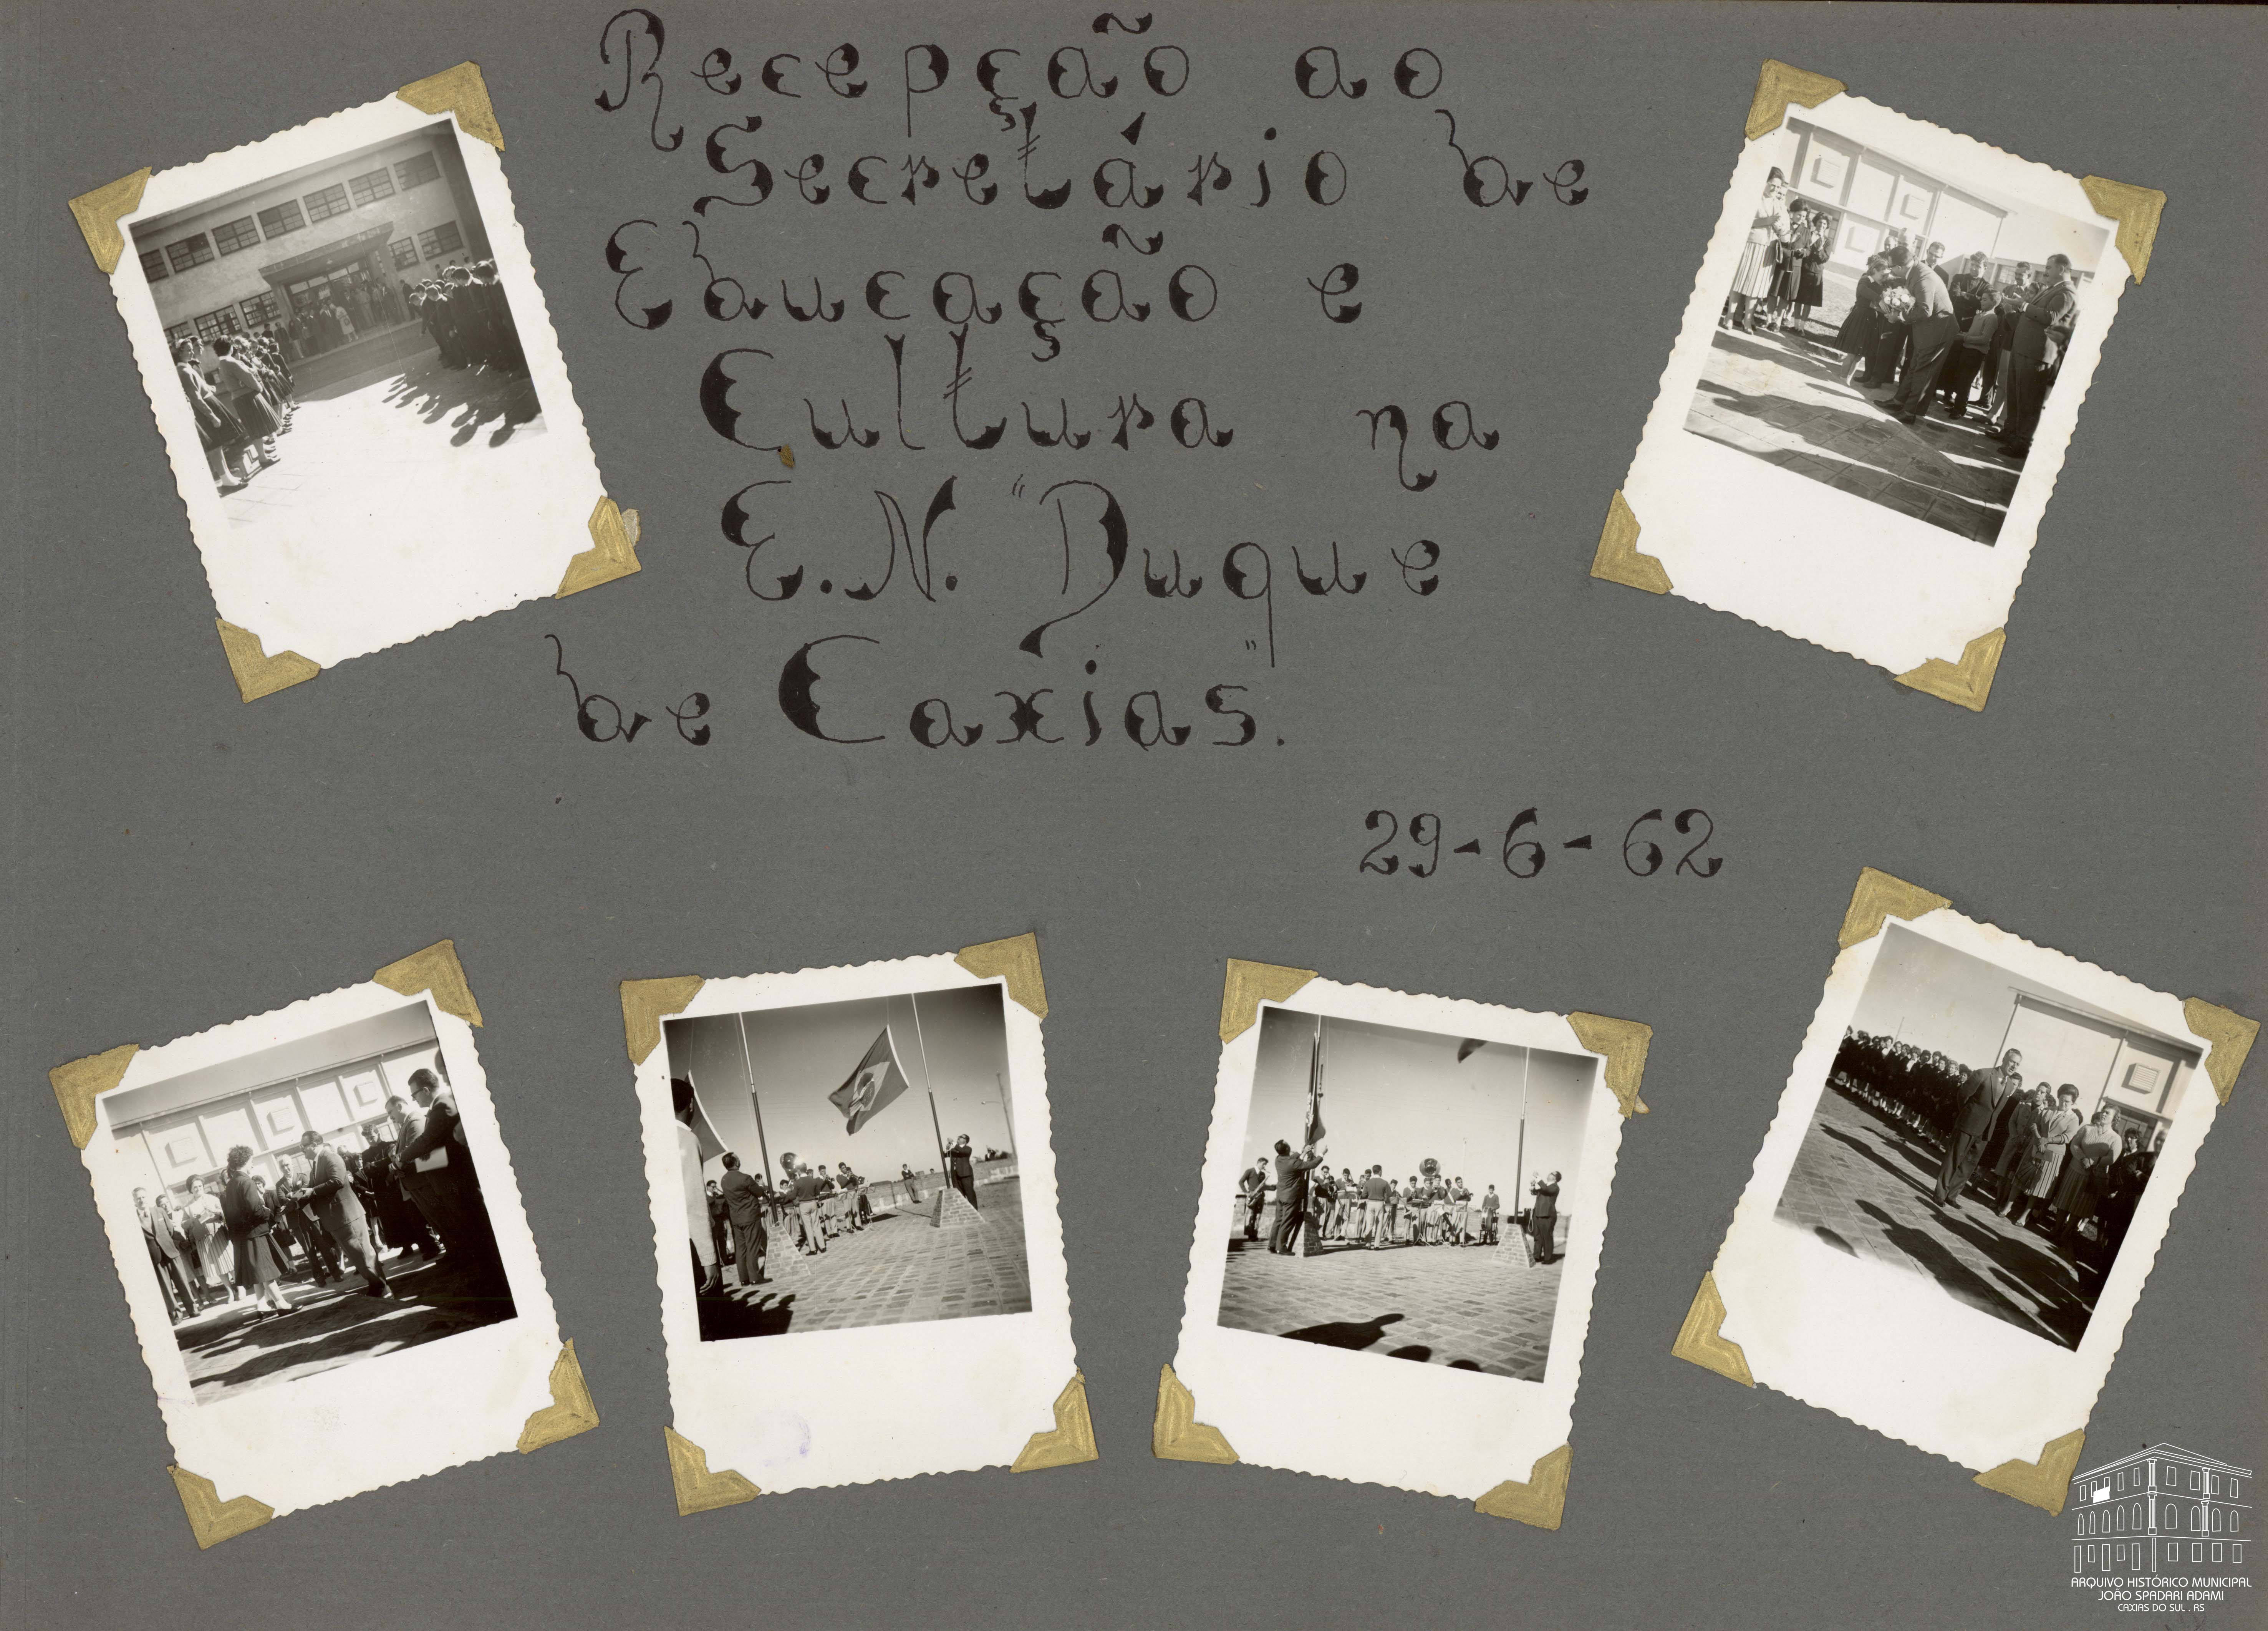 Recepção ao
Secretário de
Educação e
Cultura na
E. N. "Duque
de Caxias".
29-6-62
ARQUIVO HISTÓRICO MUNICIPAL
JOÃO SPADARI ADAMI
CAXIAS DO SUL . RS